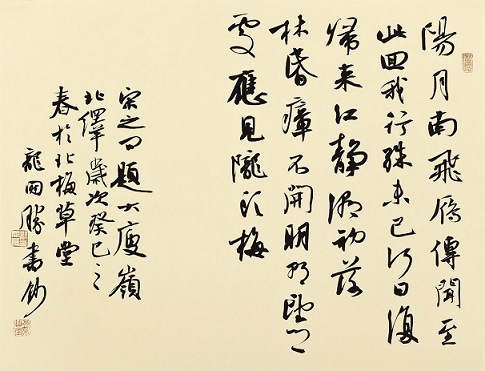 陽月南飛雁傳聞至
此回我行殊未已何日復
歸来江静潮初落
林昏瘴不開明朝望鄉
處應見隴头梅
宋之问題大庾嶺
北驛歲次癸巳之
春於北梅草堂
龍勝書鈔